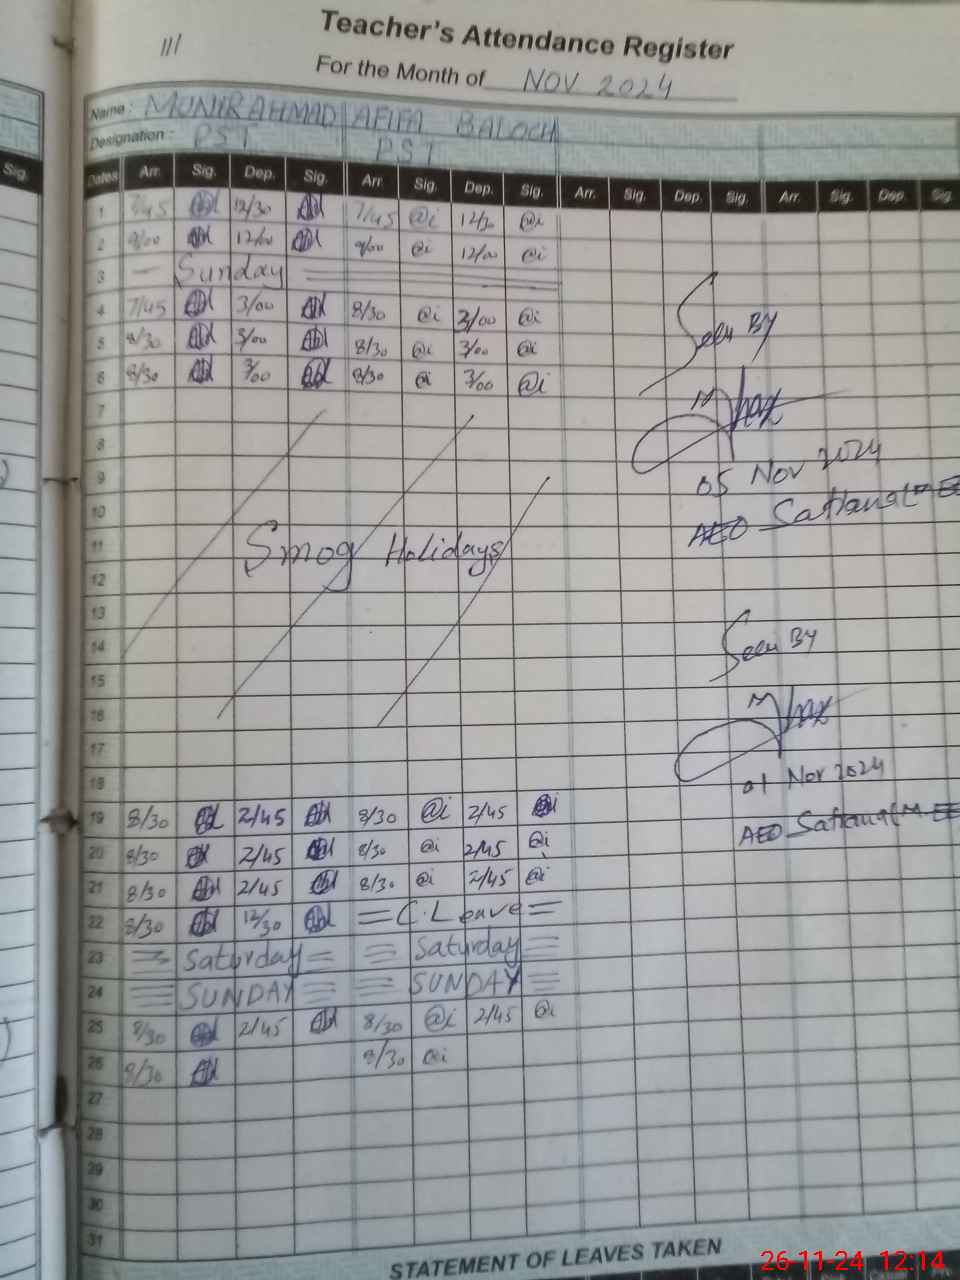 Teacher's Attendance Register
111
For the Month of NOV 2024
Name: MUNIR AHMAD AFIFA BALOCH
Designation: PST PST
Sig.
Dates Arr. Sig. Dep. Sig. Arr. Sig. Dep. Sig. Arr. Sig. Dep. Sig. Arr. Sig. Dep. Sig
1 7/45 12/30 7/45 @i 12/30 @i
2 9/00 12/00 9/00 @i 12/00 @i
3 Sunday
4 7/45 3/00 8/30 @i 3/00 @i
5 8/30 3/00 8/30 @i 3/00 @i
6 8/30 3/00 8/30 @i 3/00 @i
Seen By
7
8
9
05 Nov 2024
10
AEO
11
Smog Holidays
12
13
14
Seen By
15
16
17
18
01 Nov 2024
19 8/30 2/45 8/30 @i 2/45
AEO
20 8/30 2/45 8/30 @i 2/45 @i
21 8/30 2/45 8/30 @i 2/45 @i
22 8/30 12/30 = C.Leave =
23 Saturday Saturday
24 SUNDAY SUNDAY
25 8/30 2/45 8/30 @i 2/45 @i
26 8/30 8/30 @i
27
28
29
30
31
STATEMENT OF LEAVES TAKEN
26-11-24 12:14